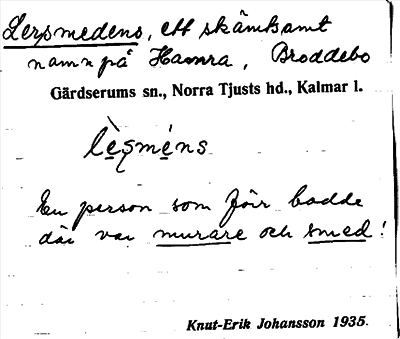 Lersmedens, ett skämtsamt
namn på Hamra, Broddebo
Gärdserums sn., Norra Tjusts hd., Kalmar l.
lè̱ṣmé̱ns
En person som förr bodde
där var murare och smed!
Knut-Erik Johansson 1935.